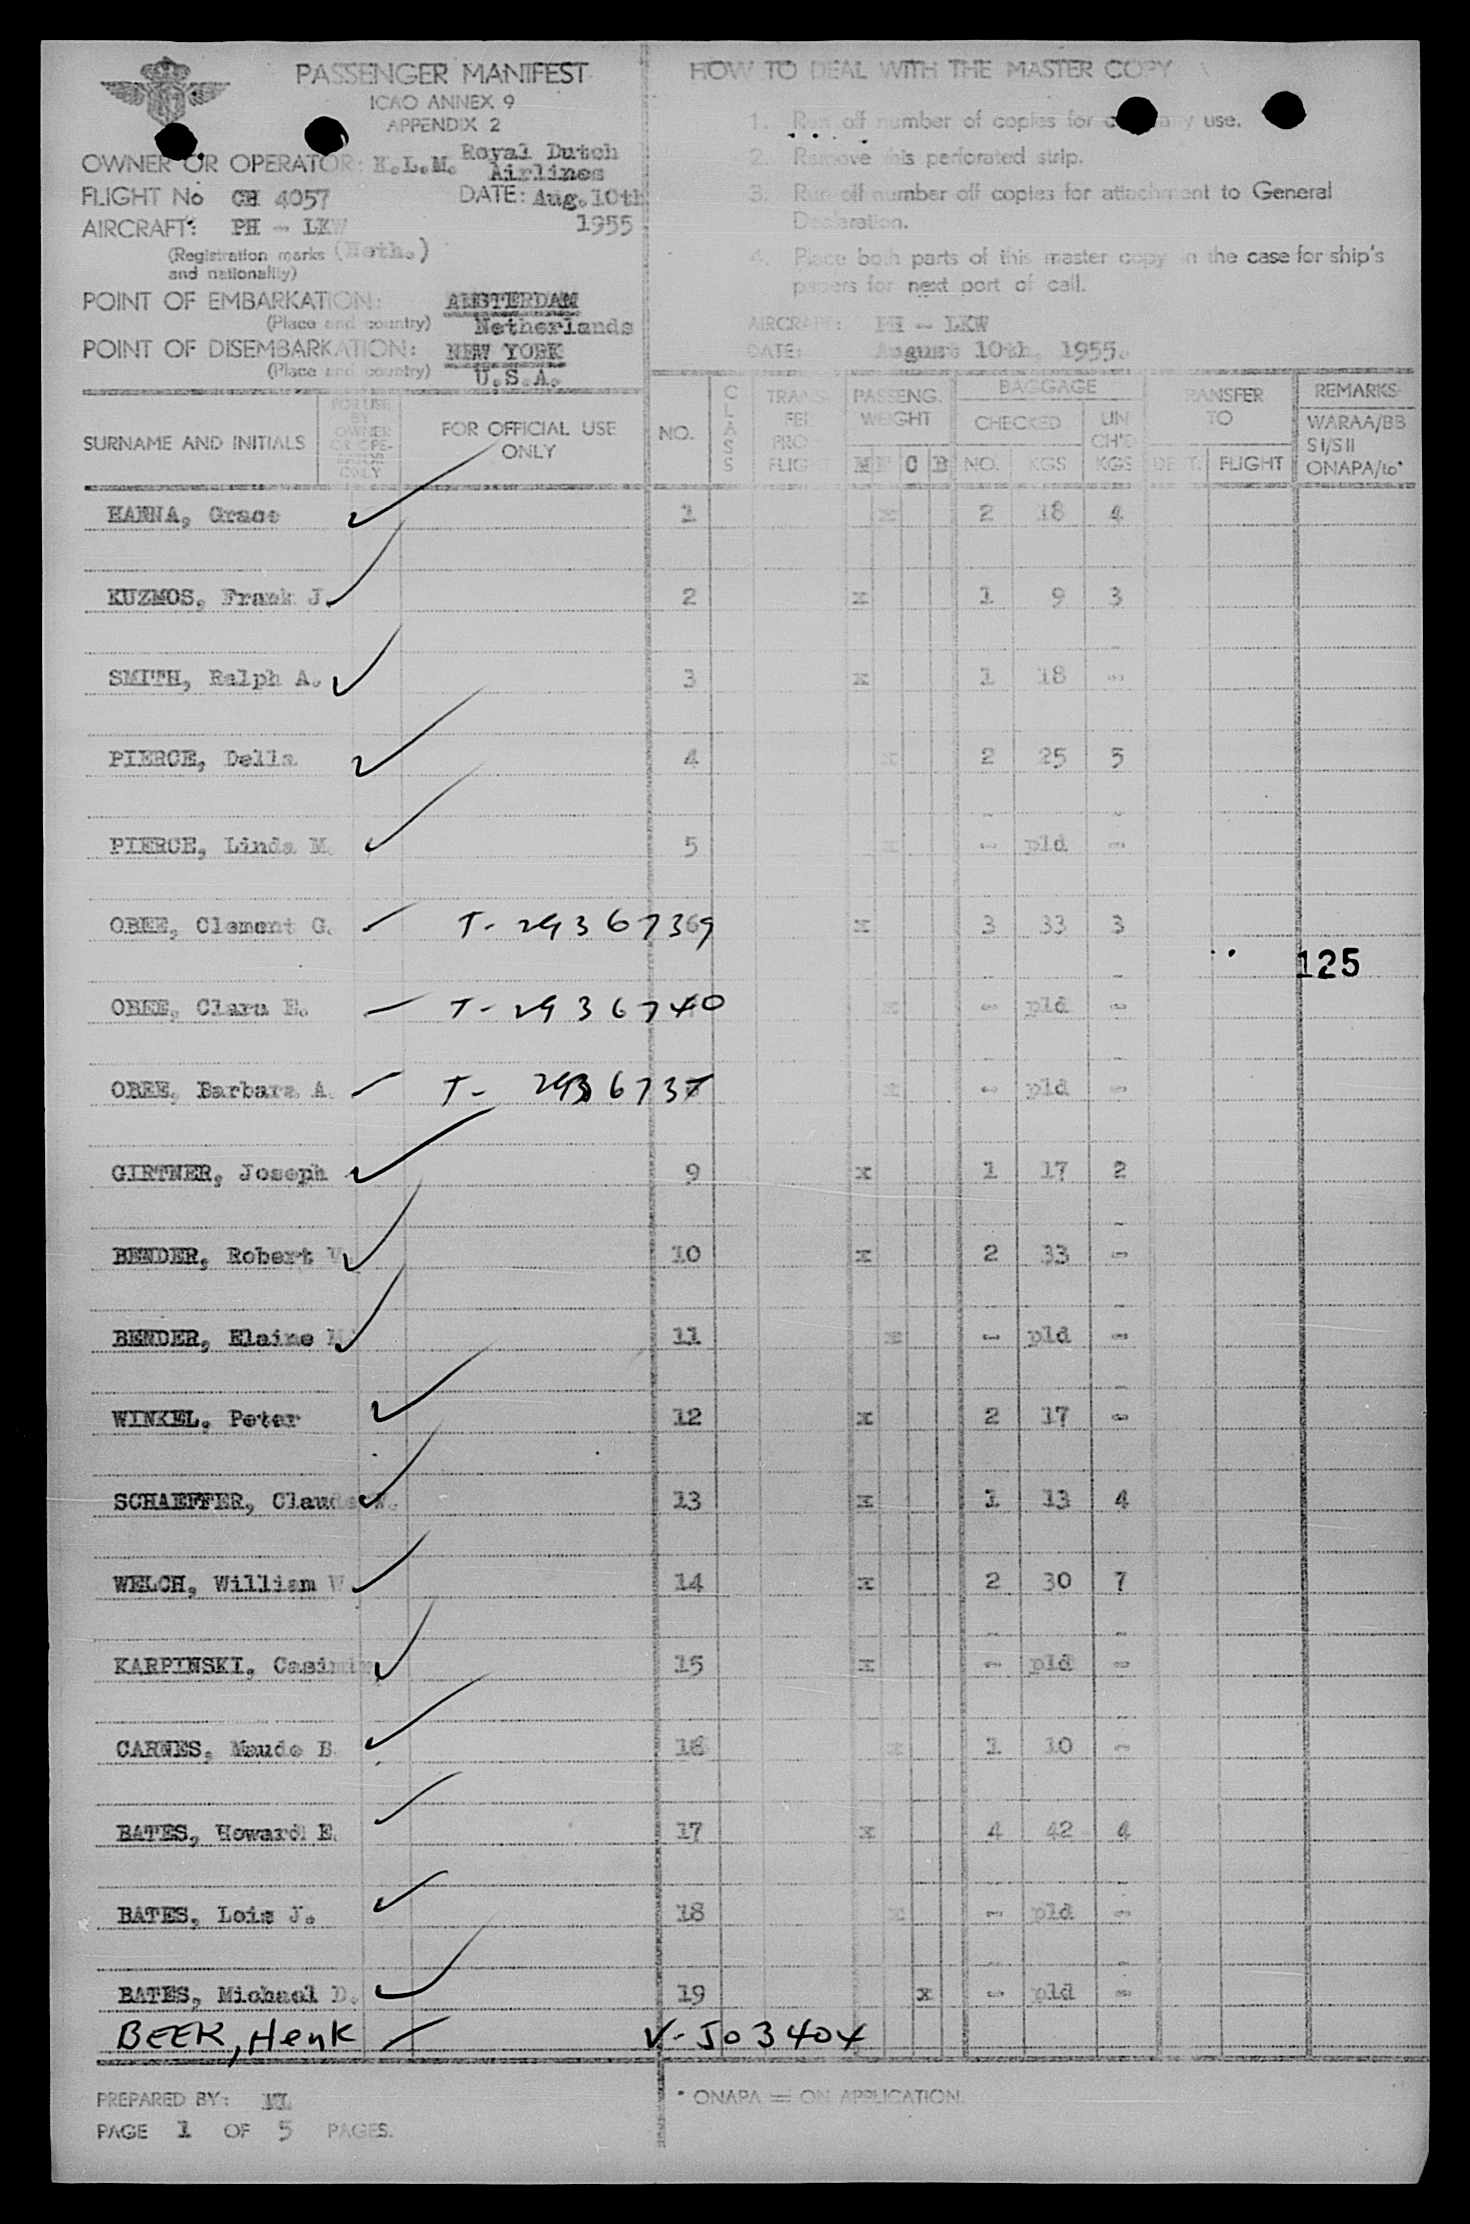 PASSENGER MANIFEST
ICAO ANNEX 9
APPENDIX 2
OWNER OR OPERATOR: K.L.M. Royal Dutch Airlines
FLIGHT No CH 4057 DATE: Aug. 10th 1955
AIRCRAFT: PH - LKW
(Registration marks and nationality) (Neth.)
POINT OF EMBARKATION: AMSTERDAM
(Place and country) Netherlands
POINT OF DISEMBARKATION: NEW YORK
(Place and country) U.S.A.
HOW TO DEAL WITH THE MASTER COPY
1. Run off number of copies for company use.
2. Remove this perforated strip.
3. Run off number off copies for attachment to General
Declaration.
4. Place both parts of this master copy in the case for ship's
papers for next port of call.
AIRCRAFT: PH - LKW
DATE: August 10th, 1955.
SURNAME AND INITIALS FOR USE BY OWNER OR OPE- RATOR ONLY FOR OFFICIAL USE ONLY NO. CLASS TRANS- FER FRO FLIGHT PASSENG. WEIGHT M F C B BAGGAGE CHECKED NO. KGS UN CH'D KGS TRANSFER TO DEST. FLIGHT REMARKS WARAA/BB SI/SII ONAPA/to*
HANNA, Grace 1 x 2 18 4
KUZMOS, Frank J. 2 x 1 9 3
SMITH, Ralph A. 3 x 1 18 -
PIERCE, Della 4 x 2 25 5
PIERCE, Linda M. 5 x - pld -
OBEE, Clement G. T-2936739 6 x 3 33 3
125
OBEE, Clara E. T-2936740 x - pld -
OBEE, Barbara A. T-2936737 x - pld -
GIRTNER, Joseph 9 x 1 17 2
BENDER, Robert 10 x 2 33 -
BENDER, Elaine 11 x - pld -
WINKEL, Peter 12 x 2 17 -
SCHAEFFER, Claude W. 13 x 1 13 4
WELCH, William W 14 x 2 30 7
KARPINSKI, Casimir 15 x - pld -
CARNES, Maude B. 16 x 1 10 -
BATES, Howard E. 17 x 4 42 4
BATES, Lois J. 18 x - pld -
BATES, Michael D. 19 x - pld -
BEEK, Henk V-J03404
PREPARED BY:
* ONAPA = ON APPLICATION.
PAGE 1 OF 5 PAGES.